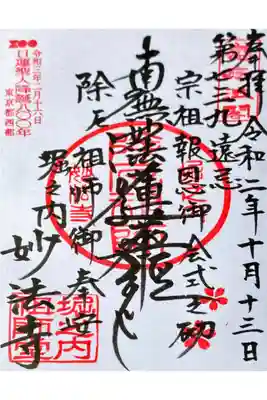 奉拝 令和二年十月十三日
第七三九遠忌
宗祖報恩御会式之砌
南無妙法蓮華経
除厄祖師御奉安
堀之内妙法寺
令和三年二月十六日
日蓮聖人降誕八〇〇年
東京都西部
堀之内